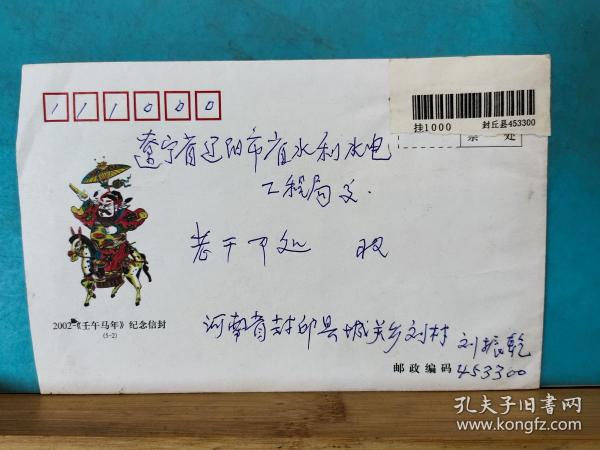 111000
挂1000 封丘县453300
票 处
辽宁省辽阳市省水利水电
工程局交
老干部处 收
2002-《壬午马年》纪念信封
(5-2)
河南省封邱县城关乡刘村
刘振乾
邮政编码 453300
孔夫子旧书网
www.kongfz.com